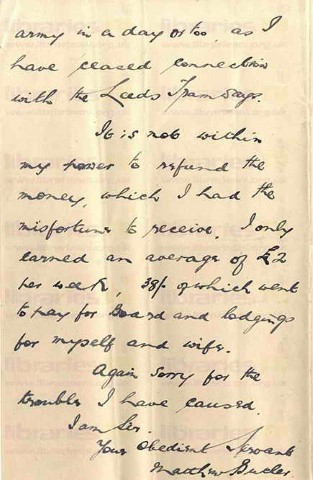 army in a day or too, as I
have ceased connection
with the Leeds Tramways.
It is not within
my power to refund the
money, which I had the
misfortune to receive, I only
earned an average of £2
per week, 38/- of which went
to pay for Board and lodgings
for myself and wife.
Again sorry for the
trouble I have caused.
I am Sir.
Your Obedient Servant
Matthew